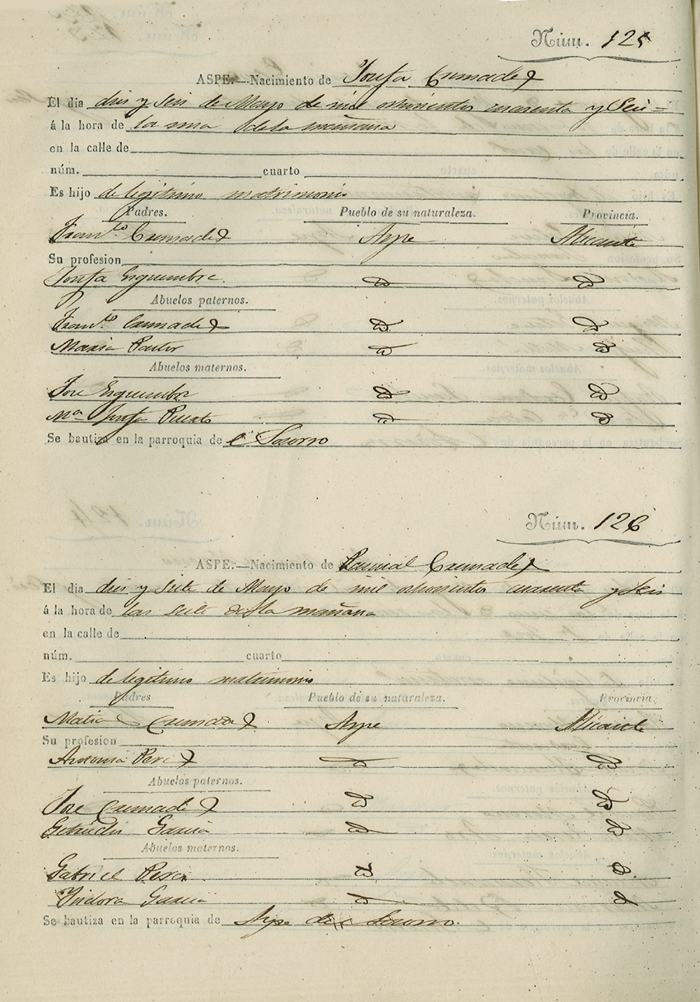 Núm. 125
ASPE.—Nacimiento de Josefa Cremades
El dia diez y seis de Mayo de mil ochocientos cuarenta y seis
á la hora de la una de la mañana
en la calle de
núm. cuarto
Es hijo de legitimo matrimonio
Padres. Pueblo de su naturaleza. Provincia.
Franco Cremades Aspe Alicante
Su profesion
Josefa Esquembre
Abuelos paternos.
Franco Cremades
Maria Pastor
Abuelos maternos.
Jose Esquembre
Ma Josefa Puerto
Se bautiza en la parroquia de el Socorro
Núm. 126
ASPE.—Nacimiento de Pascual Cremades
El dia diez y siete de Mayo de mil ochocientos cuarenta y seis
á la hora de las siete de la mañana
en la calle de
núm. cuarto
Es hijo de legitimo matrimonio
Padres Pueblo de su naturaleza. Provincia.
Cremades Aspe Alicante
Su profesion
Antonia Perez
Abuelos paternos.
Jose Cremades
Getrudis Garcia
Abuelos maternos.
Gabriel Perez
Ysidora Garcia
Se bautiza en la parroquia de Aspe del Socorro.